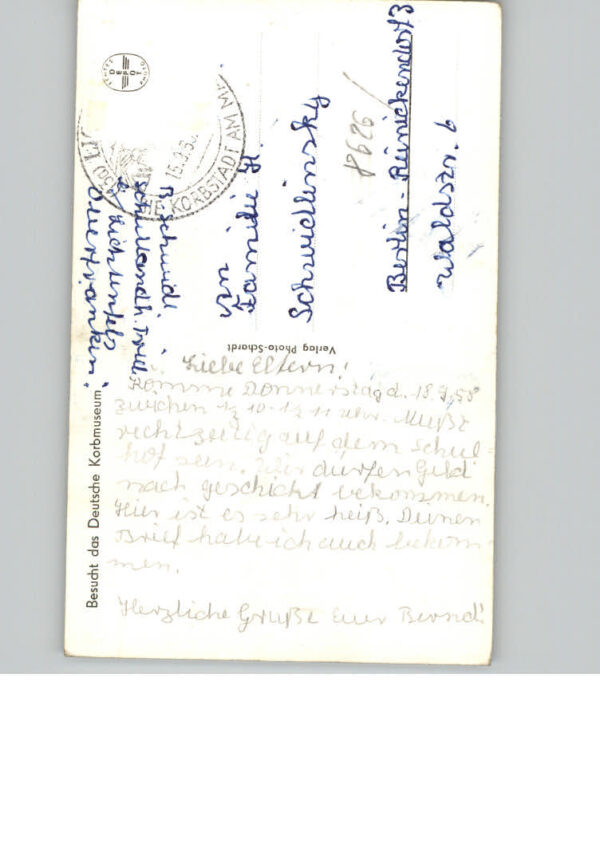 Liebe Eltern!
Komme Donnerstag d. 18.9.58
zwischen ½ 10-½ 11 Uhr. Mußt
rechtzeitig auf dem Schul-
hof sein. Wir dürfen Geld
nach geschickt bekommen.
Hier ist es sehr heiß. Deinen
Brief habe ich auch bekom-
men.
Herzliche Grüße Euer Bernd!
Besucht das Deutsche Korbmuseum
Verlag Photo-Schardt
B. Schwidl
Schullandh.
Lichtenfels
Oberfranken!
KORBSTADT AM
An
Familie H.
Schwidlinsky
8626
Berlin-Reinickendorf 3
Waldstr. 6